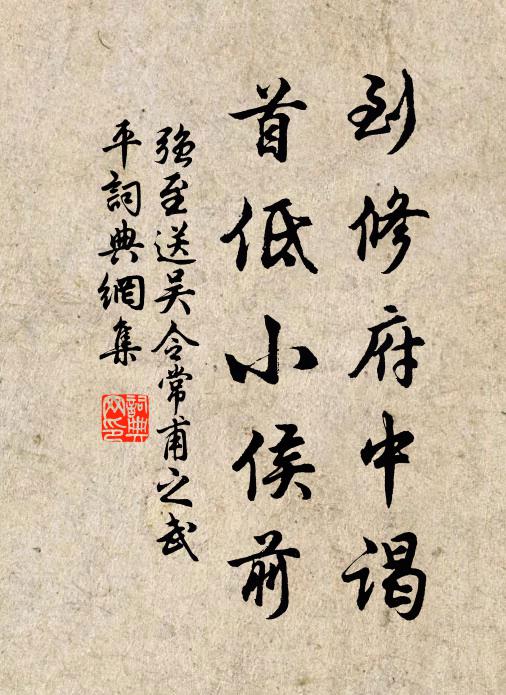 到修府中謁
首低小侯前
強至送吴令常甫之武
平詞典網集
詞典
网印